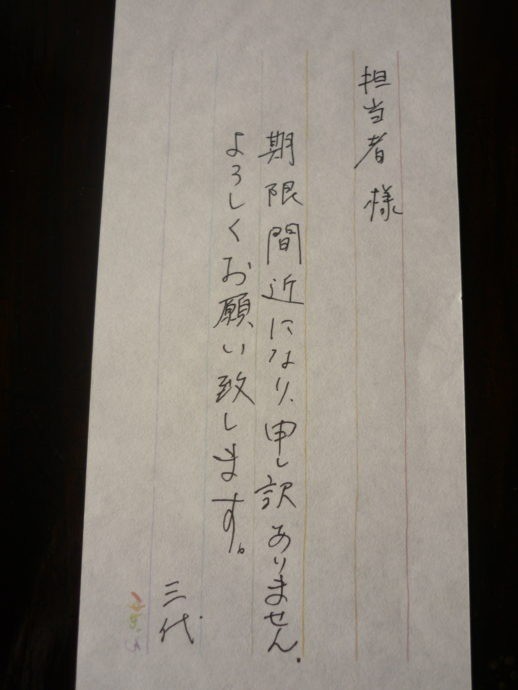 担当者様
期限間近になり、申し訳ありません。
よろしくお願い致します。
三代